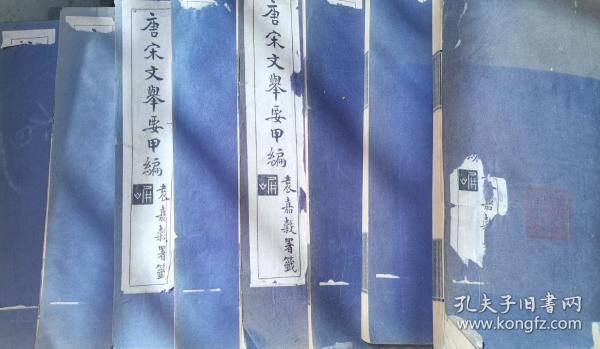 唐宋文舉要甲編
袁嘉穀署籤
唐宋文舉要甲編
袁嘉穀署籤
孔夫子旧书网
www.kongfz.com